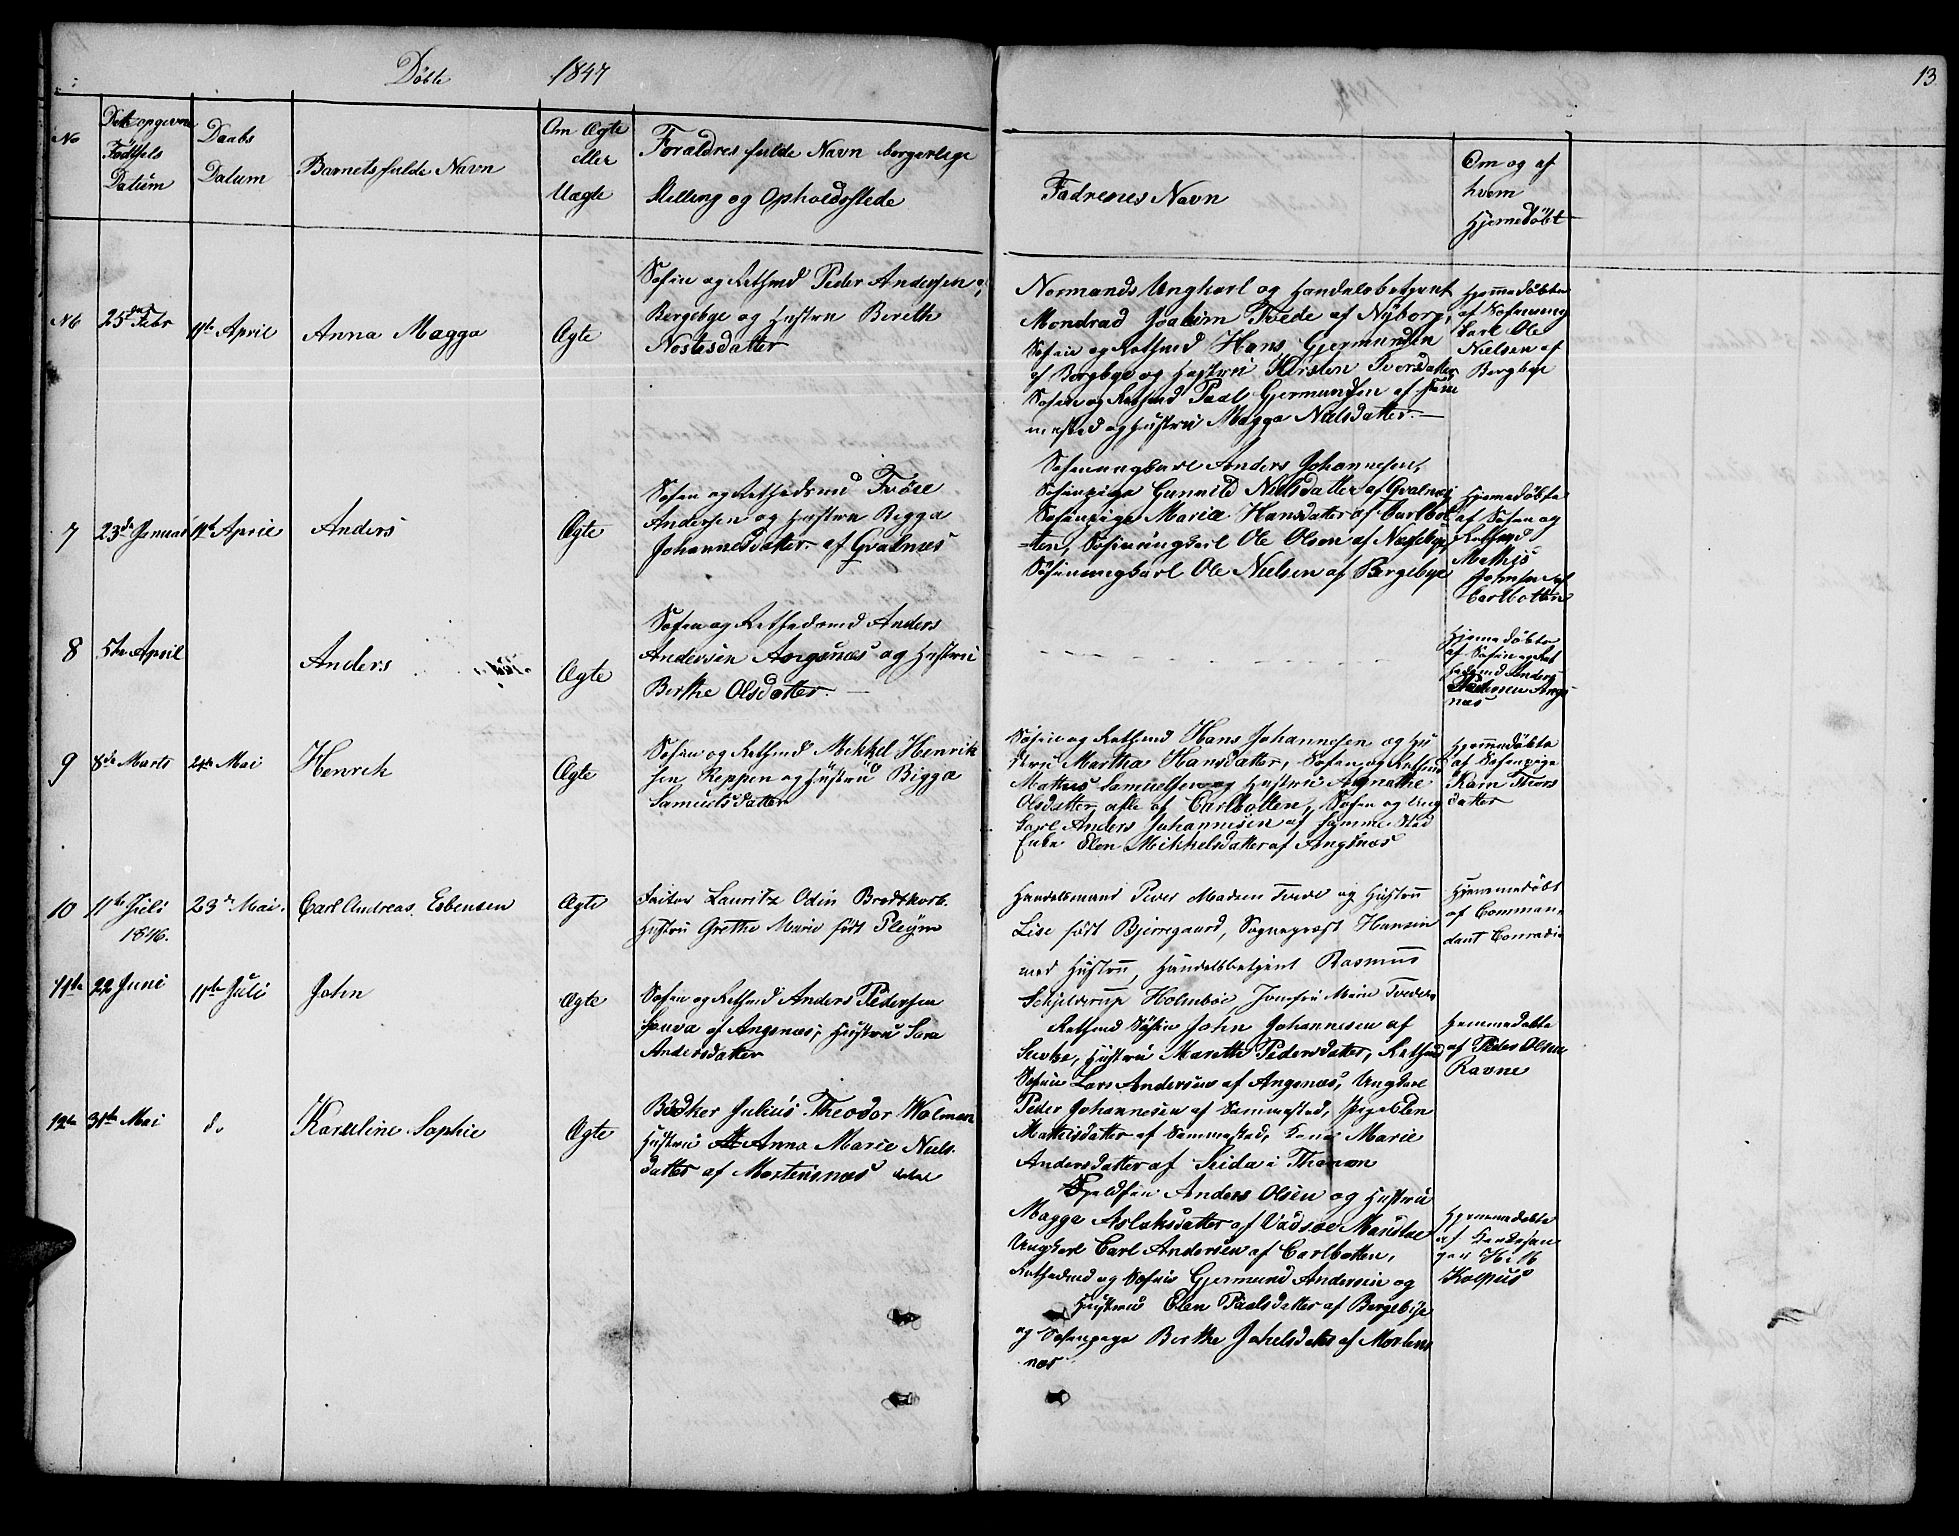 Döbte 1847
13
No
Dets opgivne
Födsels
Datum
Daabs
Datum
Barnets fulde Navn
Om Ægte
eller
Uægte
Forældres fulde Navn borgerlige
Stilling og Opholdsstede
Fadrenes Navn
Om og af
hvem
Hjemmedöbt
N6
25de Febr
11te April
Anna Magga
Ægte
Søfin og Retsmd Peder Andersen
Bergebye og Hustru Bereth
datter
Normands Ungkarl og Handelsbetjent
Mondrad Joakim Tvede af Nyborg,
Søfin og Retsmd Hans Gjermundsen
af Bergbye og Hustru Kirsten Iversdatter
Søfin og Retsmd Paal Gjermundsen af Sam
mested og Hustru Magga Nielsdatter.
Hjemmedöbte
af Søfinung
karl Ole
Nielsen af
Bergbye
7
23de Januar
11te April
Anders
Ægte
Søfin og Rethedsmd
Andersen og Hustru Bigga
Johannesdatter af Gvalnæs
Søfinungkarl Anders Johannesen,
Søfinpige Gunnild Nielsdatter af Gvalnæs
Søfinpige Maria Hansdatter af Carlbot
-ten, Søfinungkarl Ole Olsen af Næssebye
Søfinungkarl Ole Nielsen af Bergebye
Hjemmedöbte
af Søfin og
Retsmd
Mathis
Johnsen af
Carlbotten
8
5te April
Anders
Ægte
Søfin og Rethedsmd Anders
Andersen Angsnæs og Hustru
Berthe Olsdatter.
Hjemmedöbte
af Søfin og Ret
hedsmd Anders
Andersen Angs
næs
9
8de Marts
24de Mai
Henrik
Ægte
Søfin og Retsmd Mikkel Henrik
sen Reppen og Hustru Bigga
Samuelsdatter
Søfin og Retsmd Hans Johannesen og Hu
stru Martha Hansdatter, Søfin og Retsmd
Mathis Samuelsen og Hustru Agnethe
Olsdatter, alle af Carlbotten, Søfin og Ung
karl Anders Johannesen af samme Sted
Enke Elen Mikkelsdatter af Angsnæs
Hjemmedöbte
af Søfinpige
Karn Thors
datter
10
11te Juli
1846.
23de Mai.
Carl Andreas Esbensen
Ægte
Factor Lauritz Odin Brodtkorb.
Hustru Grethe Marie født Pleym
Handelsmand Peder Madsen Tvede og Hustru
Lise født Bjerregaard, Sognepræst Hansen
med Hustru, Handelsbetjent Rasmus
Schjelderup Holmboe, Jomfru Marie Tvede
Hjemmedöbt
af Comman
dant Conradie
11te
22 Juni
11te Juli
John
Ægte
Søfin og Retsmd Anders Pedersen
af Angsnæs, Hustru Sara
Andersdatter
Retsmd Søfin John Johannesen af
Hustru Marethe Pedersdatter, Retsmd
Søfin Lars Andersen af Angsnæs, Ungkarl
Peder Johannesen af Sammested, Pige Elen
Mathisdatter af Sammested, Kone Marie
Andersdatter af Seida i Thanen
Hjemmedøbte
af Peder Olsen
Ravne
12te
31te Mai
do
Kareline Sophie
Ægte
Bødker Julius Theodor Wolman
Hustru Anna Marie Niels
datter af Mortensnæs
Fjeldfin Anders Olsen og Hustru
Magge Aslaksdatter af Vadsøe
Ungkarl Carl Andersen af Carlbotten,
Rethedmd og Søfin Gjermund Andersen og
Hustru Elen Paalsdatter af Bergebye
og Søfinpige Berthe Jakelsdatter af Mortens
næs
Hjemmedøbte
af Kirkesan
ger
Kolpus